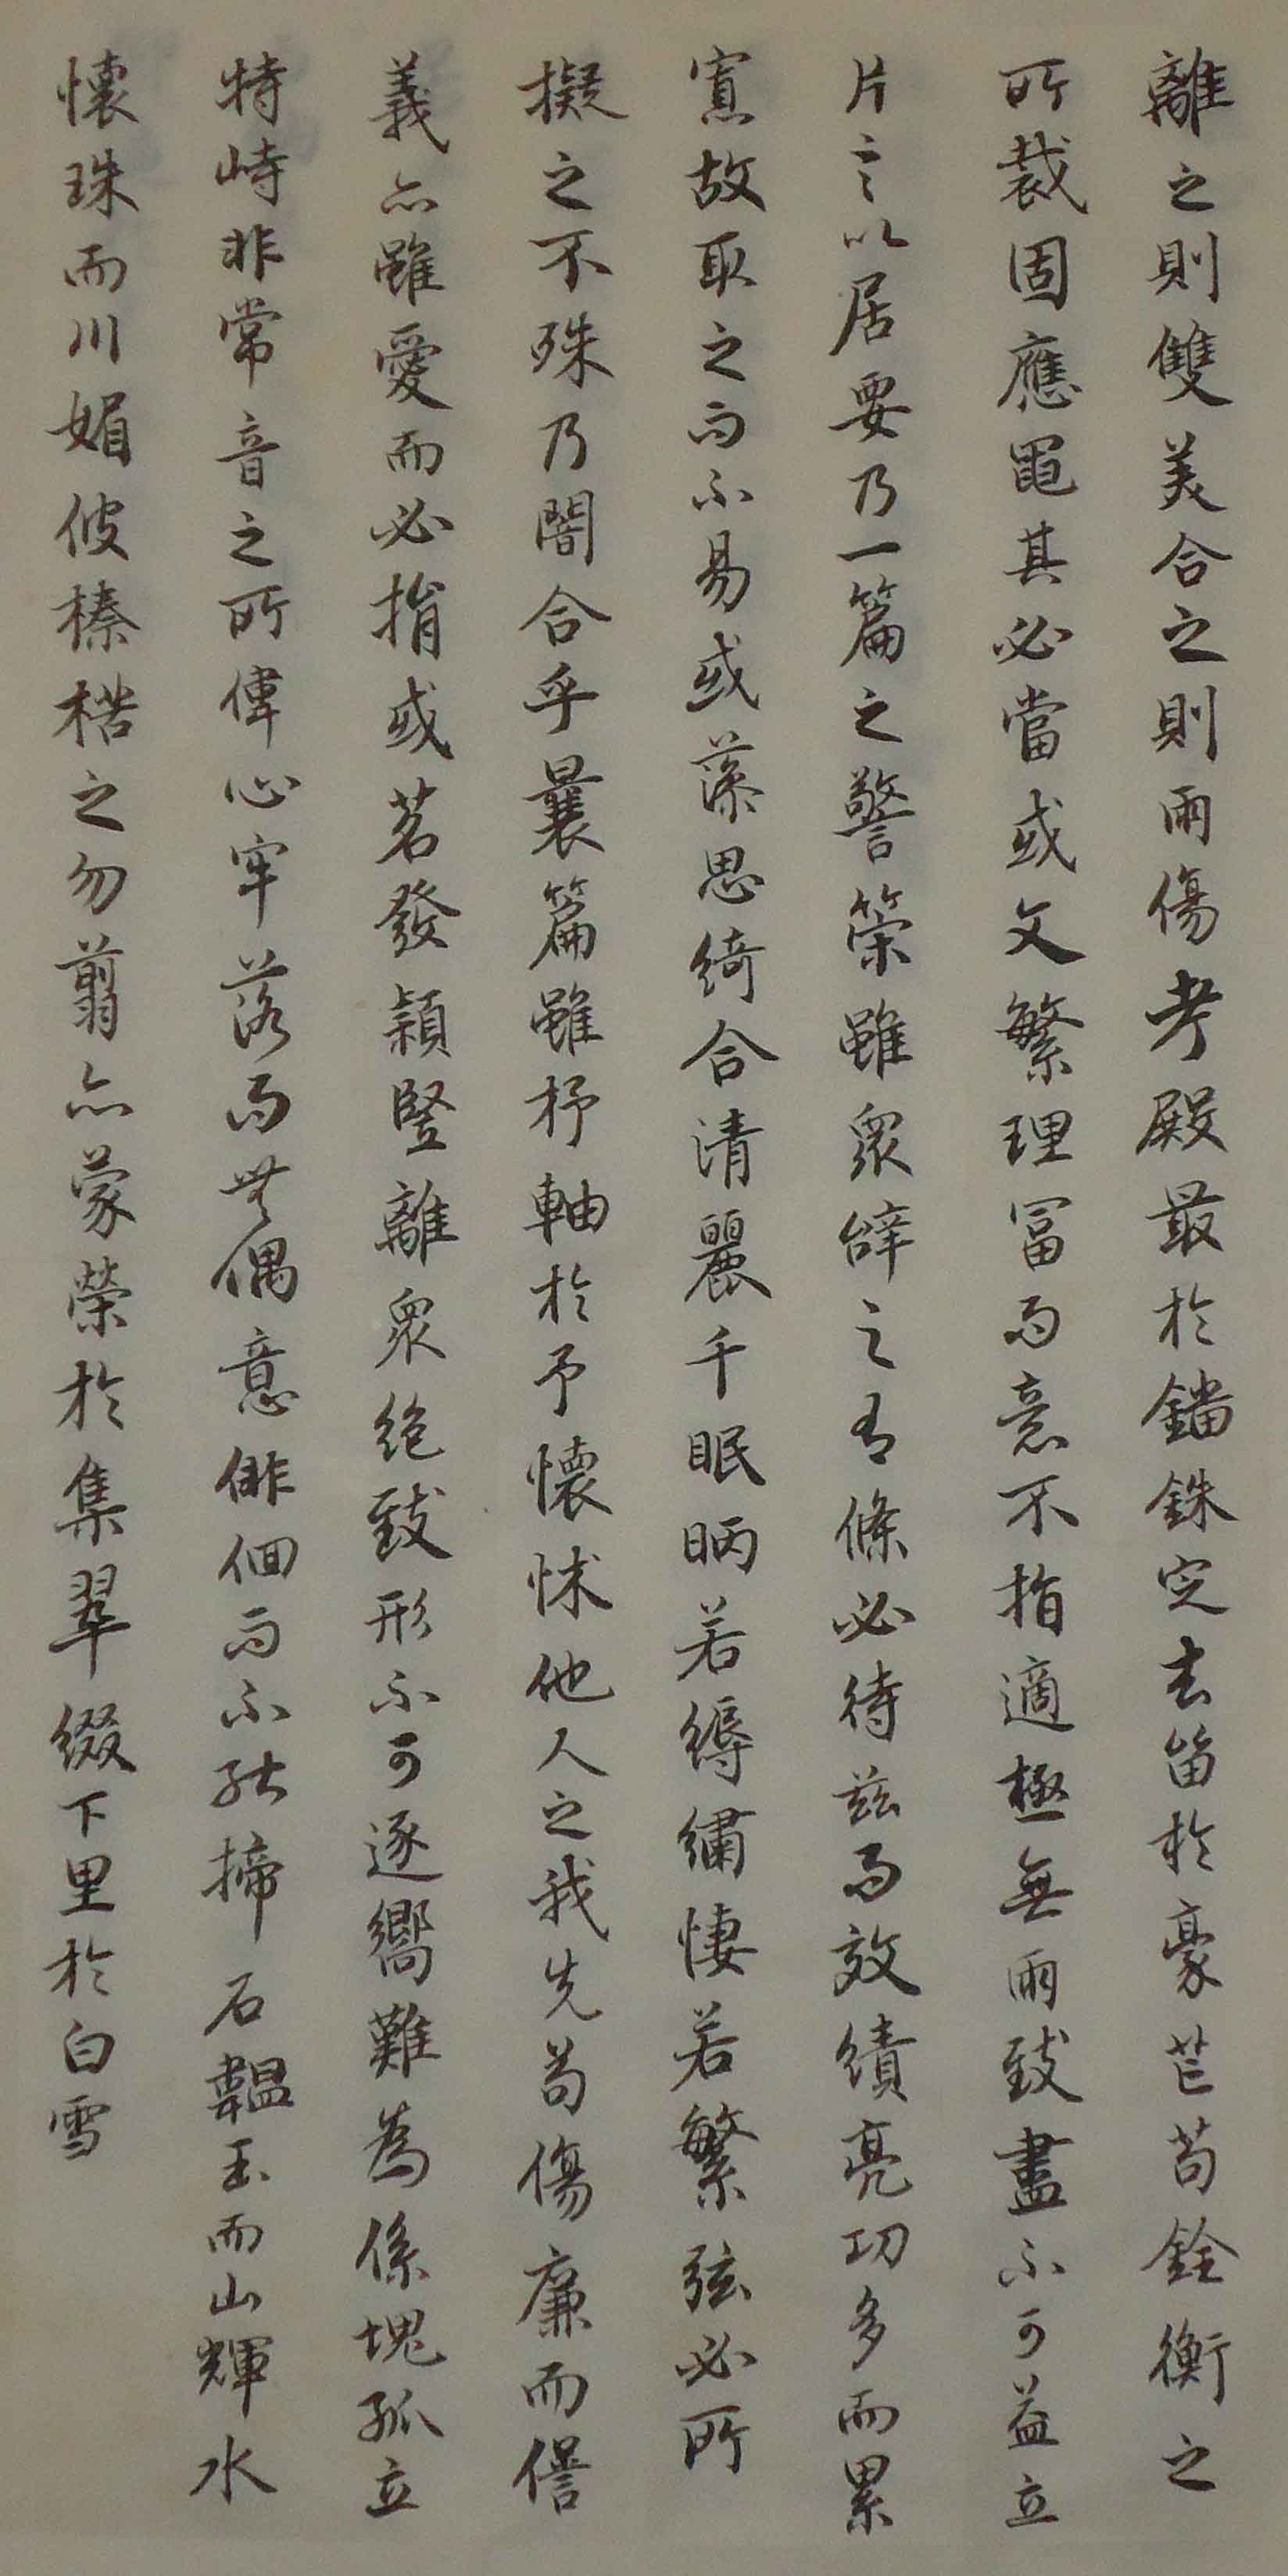 離之則雙美合之則兩傷考殿最於錙銖定去留於豪芒苟銓衡之
所裁固應繩其必當或文繁理富而意不指適極無兩致盡不可益立
片言以居要乃一篇之警策雖眾辭之有條必待茲而效績亮功多而累
寡故取之而不易或藻思綺合清麗千眠炳若縟繡悽若繁弦必所
擬之不殊乃闇合乎曩篇雖杼軸於予懷怵他人之我先苟傷廉而愆
義亦雖愛而必捐或苕發穎豎離眾絕致形不可逐嚮難為係塊孤立
特峙非常音之所偉心牢落而無偶意俳佪而不能揥石韞玉而山輝水
懷珠而川媚彼榛楛之勿翦亦蒙榮於集翠綴下里於白雪